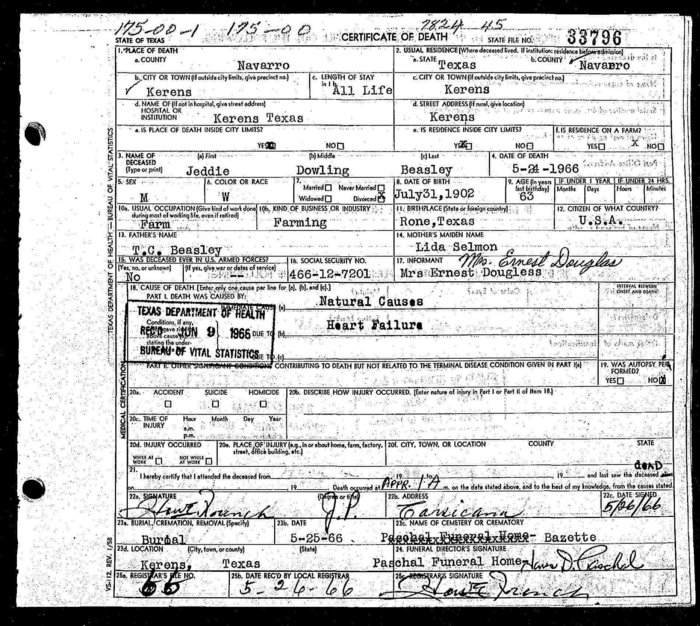 175-00-1 175-00 7824 45
STATE OF TEXAS CERTIFICATE OF DEATH STATE FILE NO. 33796
1. PLACE OF DEATH 2. USUAL RESIDENCE (Where deceased lived. If institution: residence before admission)
a. COUNTY Navarro a. STATE Texas b. COUNTY Navarro
b. CITY OR TOWN (If outside city limits, give precinct no.) Kerens c. LENGTH OF STAY in 1b All Life c. CITY OR TOWN (If outside city limits, give precinct no.) Kerens
d. NAME OF (If not in hospital, give street address) HOSPITAL OR INSTITUTION Kerens Texas d. STREET ADDRESS (If rural, give location) Kerens
e. IS PLACE OF DEATH INSIDE CITY LIMITS? YES NO e. IS RESIDENCE INSIDE CITY LIMITS? YES NO f. IS RESIDENCE ON A FARM? YES NO X
3. NAME OF DECEASED (Type or print) (a) First Jeddie (b) Middle Dowling (c) Last Beasley 4. DATE OF DEATH 5-24-1966
5. SEX M 6. COLOR OR RACE W 7. Married Never Married Widowed Divorced 8. DATE OF BIRTH July31,1902 9. AGE (In years last birthday) 63 IF UNDER 1 YEAR Months Days IF UNDER 24 HRS. Hours Minutes
10a. USUAL OCCUPATION (Give kind of work done during most of working life, even if retired) Farm 10b. KIND OF BUSINESS OR INDUSTRY Farming 11. BIRTHPLACE (State or foreign country) Rone,Texas 12. CITIZEN OF WHAT COUNTRY? U.S.A.
13. FATHER'S NAME T.C. Beasley 14. MOTHER'S MAIDEN NAME Lida Selmon
15. WAS DECEASED EVER IN U.S. ARMED FORCES? (Yes, no, or unknown) (If yes, give war or dates of service) No 16. SOCIAL SECURITY NO. 466-12-7201 17. INFORMANT Mrs. Ernest Douglas Mrs Ernest Dougless
18. CAUSE OF DEATH [Enter only one cause per line for (a), (b), and (c).] INTERVAL BETWEEN ONSET AND DEATH
PART I. DEATH WAS CAUSED BY: IMMEDIATE CAUSE (a) Natural Causes
Conditions, if any, DUE TO (b) Heart Failure
stating the under- DUE TO (c)
TEXAS DEPARTMENT OF HEALTH
REC'D JUN 9 1966
BUREAU OF VITAL STATISTICS
PART II. OTHER SIGNIFICANT CONDITIONS CONTRIBUTING TO DEATH BUT NOT RELATED TO THE TERMINAL DISEASE CONDITION GIVEN IN PART I(a) 19. WAS AUTOPSY PERFORMED? YES NO
20a. ACCIDENT SUICIDE HOMICIDE 20b. DESCRIBE HOW INJURY OCCURRED. (Enter nature of injury in Part I or Part II of item 18.)
20c. TIME OF INJURY Hour Month Day Year a.m. p.m.
20d. INJURY OCCURRED WHILE AT WORK NOT WHILE AT WORK 20e. PLACE OF INJURY (e.g., in or about home, farm, factory, street, office building, etc.) 20f. CITY, TOWN, OR LOCATION COUNTY STATE
21. I hereby certify that I attended the deceased from 19 19 and last saw the deceased dead
on 19 Death occurred at Appr. 1 A m. on the date stated above, and to the best of my knowledge, from the causes stated
22a. SIGNATURE (Degree or title) J.P. 22b. ADDRESS Corsicana 22c. DATE SIGNED 5/26/66
23a. BURIAL, CREMATION, REMOVAL (Specify) Burial 23b. DATE 5-25-66 23c. NAME OF CEMETERY OR CREMATORY Paschal Funeral Home- Bazette
23d. LOCATION (City, town, or county) (State) Kerens, Texas 24. FUNERAL DIRECTOR'S SIGNATURE Paschal Funeral Home
25a. REGISTRAR'S FILE NO. 66 25b. DATE REC'D BY LOCAL REGISTRAR 5-26-66 25c. REGISTRAR'S SIGNATURE
TEXAS DEPARTMENT OF HEALTH — BUREAU OF VITAL STATISTICS
MEDICAL CERTIFICATION
VS-112 REV. 1/58